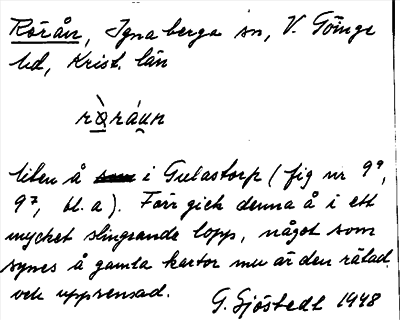 Rörån, Ignaberga sn, V. Göinge
hd, Krist. län
rö̀ráun
liten å i Gulastorp (fig nr 9⁹,
9⁷, bl. a). Förr gick denna å i ett
mycket slingrande lopp, något som
synes å gamla kartor nu är den rätad
och upprensad.
G. Sjöstedt 1948